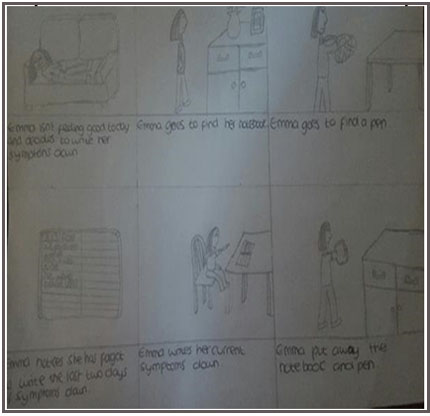 Emma isn't feeling good today
and decides to write her
symptoms down
Emma goes to find her notebook
Emma goes to find a pen
Emma notices she has forgot
write the last two days
symptoms down.
Emma writes her current
symptoms down
Emma put away the
notebook and pen.